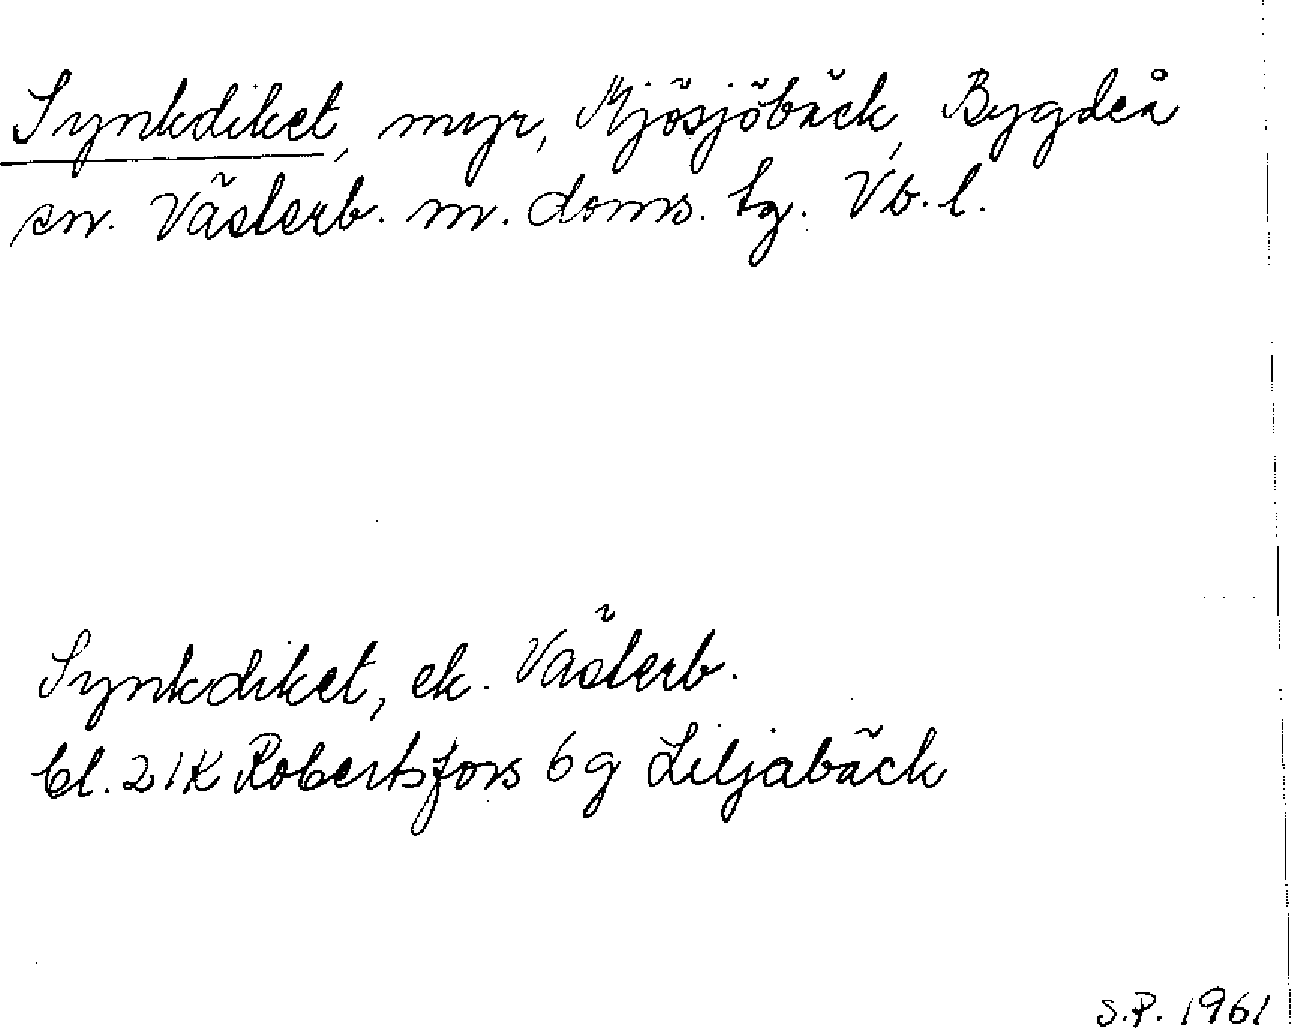 Synkdiket, myr, Mjösjöbäck, Bygdeå
sn. Västerb. m. doms. tg. Vb. l.
Synkdiket, ek. Västerb.
bl. 21K Robertsfors 6g Liljabäck
S.P. 1961